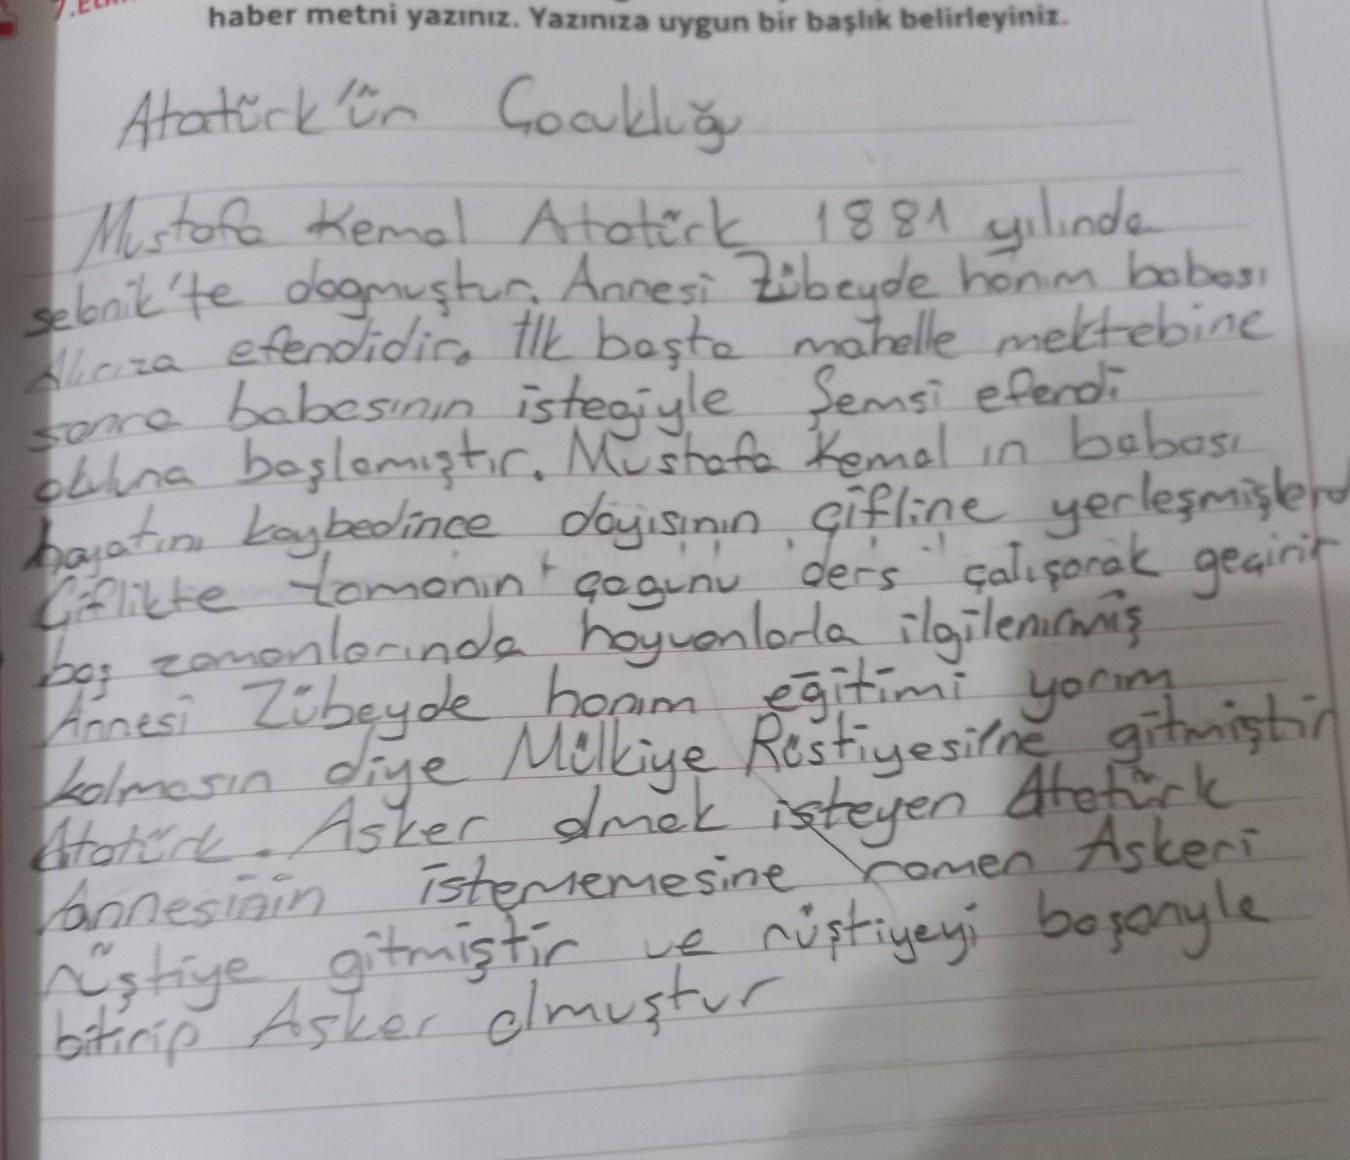 haber metni yazınız. Yazınıza uygun bir başlık belirleyiniz.
Atatürk'ün Çocukluğu
Mustafa Kemal Atatürk 1881 yılında
selanik'te dogmuştur. Annesi Zübeyde hanım babası
Alirıza efendidir. İlk başta mahelle mektebine
sonra babasının istegiyle Şemsi efendi
okuluna başlamıştır. Mustafa Kemal ın babası
hayatını kaybedince dayısının çifline yerleşmişlerd
Çiflikte zamanın çogunu ders çalışarak geçirir
boş zamanlarında hayvanlarla ilgilenirmiş
Annesi Zübeyde hanım eğitimi yarım
kalmasın diye Mülkiye Rüştiyesi'ne gitmiştir
Atatürk. Asker olmak isteyen Atatürk
Annesinin istememesine ramen Askeri
rüştiye gitmiştir ve rüştiyeyi başarıyla
bitirip Asker olmuştur